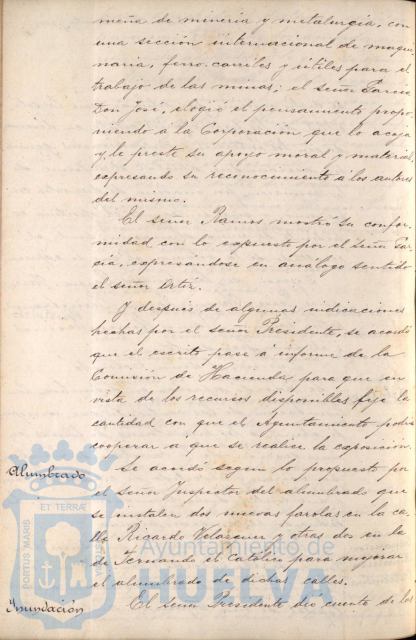 meña de minería y metalurgia, con
una sección internacional de maqui
naria, ferro-carriles y útiles para el
trabajo de las minas; el señor García
Don José, elogió el pensamiento propo
niendo á la Corporación que lo acoja
y le preste su apoyo moral y material,
expresando su reconocimiento á los autores
del mismo.
El señor Ramos mostró su confor
midad con lo expuesto por el Señor Gar
cía, expresándose en análogo sentido
el señor Ortiz.
Y después de algunas indicaciones
hechas por el señor Presidente, se acordó
que el escrito pase á informe de la
Comisión de Hacienda para que en
vista de los recursos disponibles fije la
cantidad con que el Ayuntamiento podrá
cooperar a que se realice la exposición.
Alumbrado
Se acordó segun lo propuesto por
el Señor Inspector del alumbrado que
se instalen dos nuevas farolas en la ca
lle Ricardo Velazquez y otras dos en la
de Fernando el Católico para mejorar
el alumbrado de dichas calles.
Inundación
El Señor Presidente dió cuenta de los
PORTUS MARIS ET TERRÆ
Ayuntamiento de
HUELVA